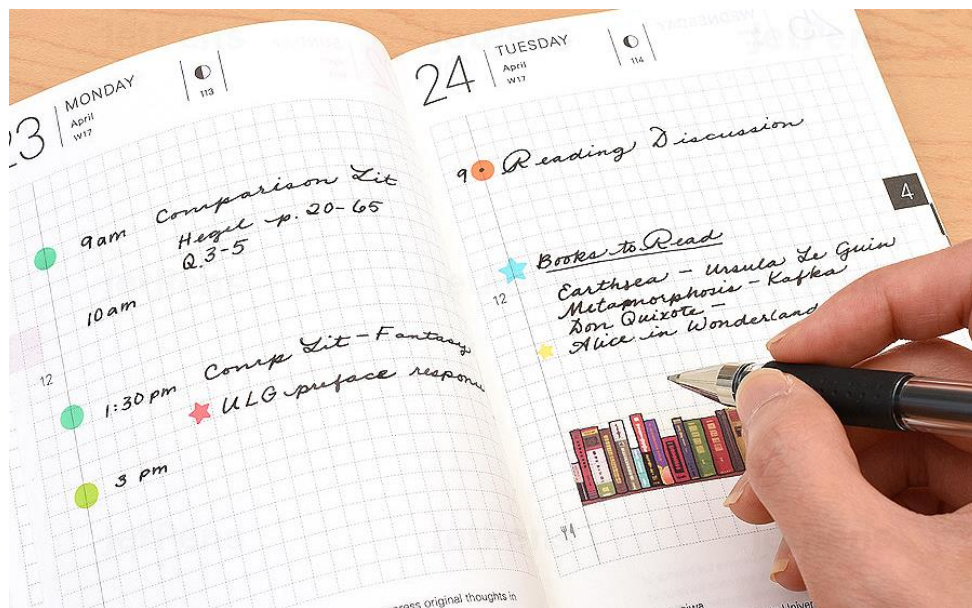 23 MONDAY
April
W17
113
9am Comparison Lit
Hegel p. 20-65
Q.3-5
10am
12
1:30 pm Comp Lit - Fantasy
ULG preface respons
3 pm
express original thoughts in
24 TUESDAY
April
W17
114
4
9 Reading Discussion
Books to Read
12
Earthsea - Ursula Le Guin
Metapmorphosis - Kafka
Don Quixote -
Alice in Wonderland